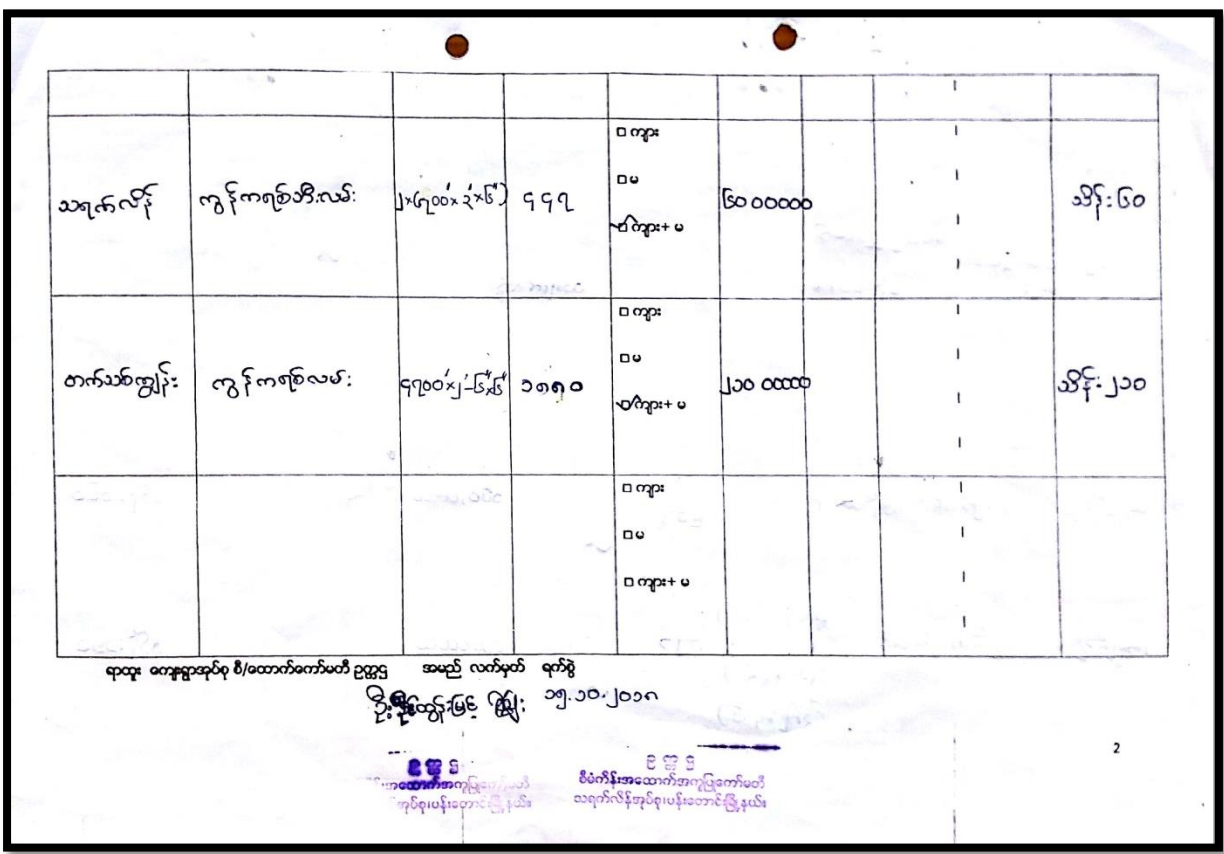 □ ကျား
□ မ
သရက်လိန် ကွန်ကရစ်အီးလမ်း ၂×(၄၇၀၀'×၃'×၆") ၄၄၇ ☑ ကျား+ မ ၆၀ ၀၀၀၀၀ သိန်း ၆၀
□ ကျား
□ မ
တက်သစ်ကျွန်း ကွန်ကရစ်လမ်း ၄၇၀၀'×၂'-၆"×၆" ၁၈၈၀ ☑ ကျား+ မ ၂၁၀ ၀၀၀၀၀ သိန်း ၂၁၀
□ ကျား
□ မ
□ ကျား+ မ
ရာထူး ကျေးရွာအုပ်စု စီ/ထောက်ကော်မတီ ဥက္ကဋ္ဌ အမည် လက်မှတ် ရက်စွဲ
ထွန်းမြင့် ၁၅.၁၀.၂၀၁၈
ဥက္ကဋ္ဌ
အထောက်အကူပြုကော်မတီ
အုပ်စု၊ပန်းတောင်းမြို့နယ်။
ဥက္ကဋ္ဌ
စီမံကိန်းအထောက်အကူပြုကော်မတီ
သရက်လိန်အုပ်စု၊ပန်းတောင်းမြို့နယ်။
2